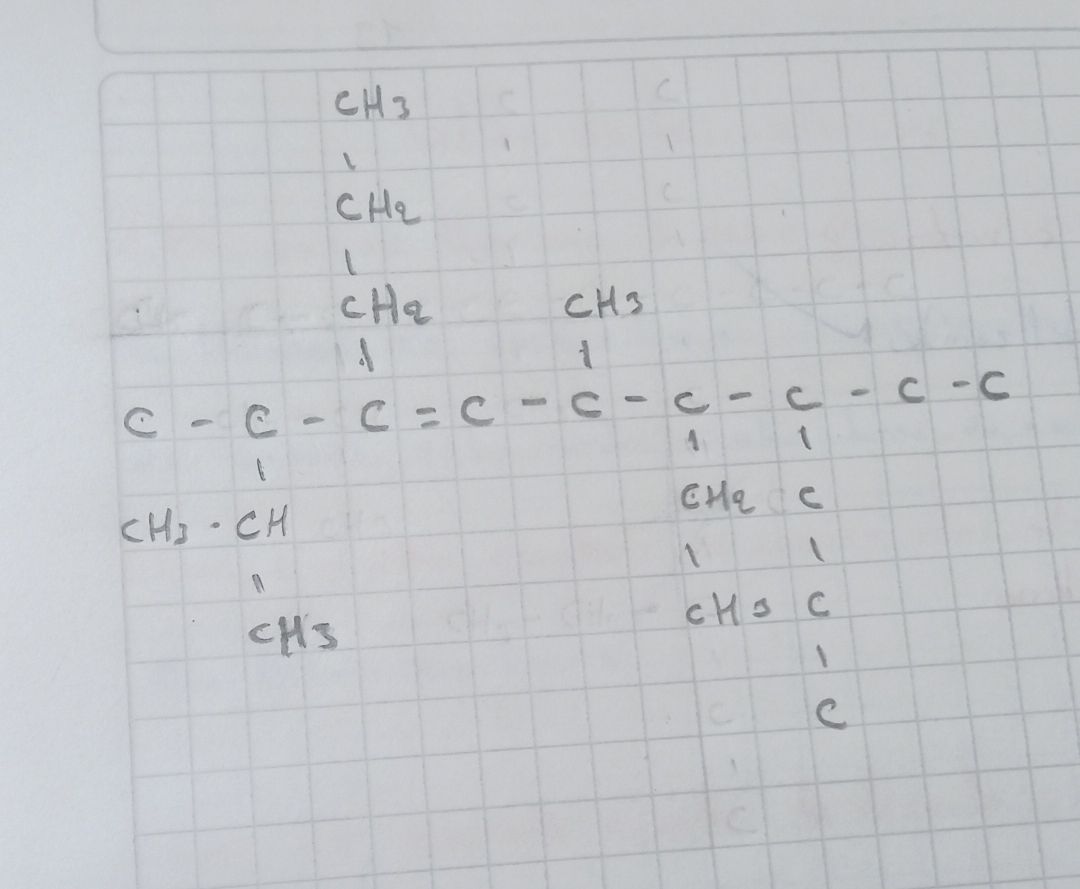 CH3
|
CH2
|
CH2 CH3
| |
C - C - C = C - C - C - C - C - C
| | |
CH3 - CH CH2 C
| | |
CH3 CH3 C
|
C